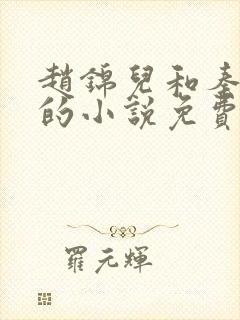 趙錦兒和秦
的小說免費
羅元輝